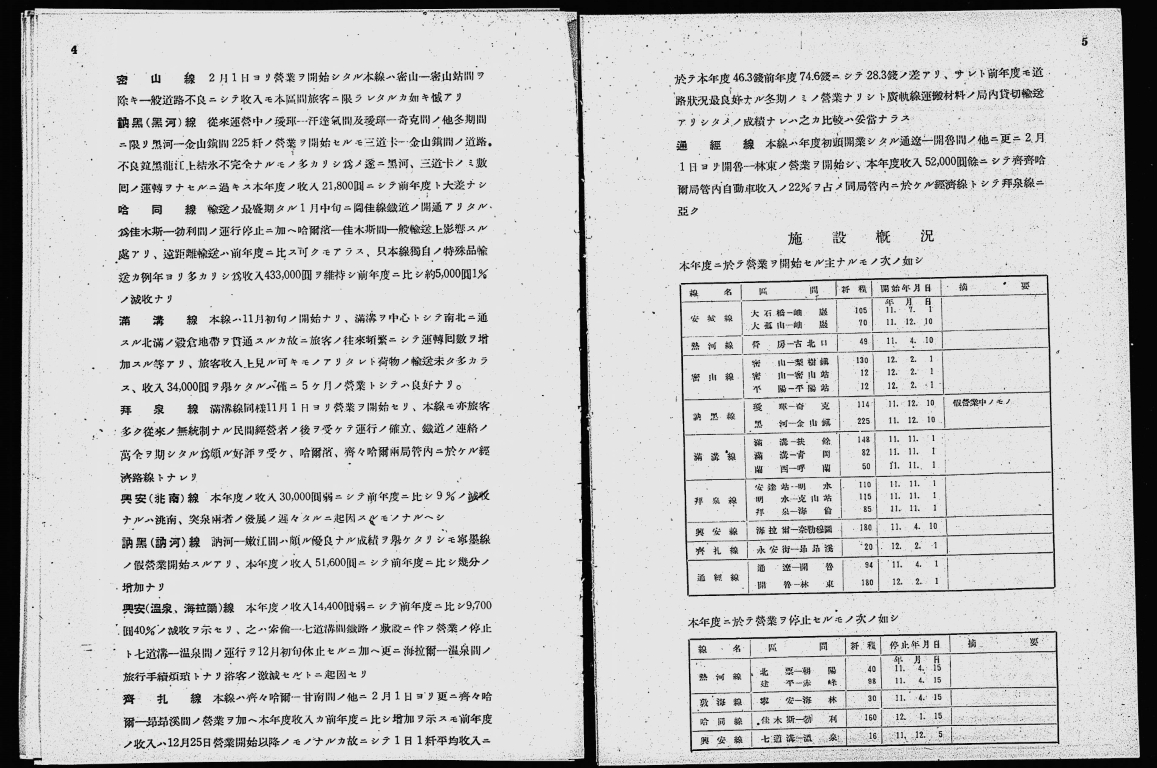 4
密山線 2月1日ヨリ營業ヲ開始シタル本線ハ密山一密山站間ヲ
除キ一般道路不良ニシテ收入モ本區間旅客ニ限ラレタルカ如キ憾アリ
訥黑(黑河)線 從來運營中ノ璦琿一汗達氣間及璦琿一奇克間ノ他冬期間
ニ限リ黑河一金山鎭間225粁ノ營業ヲ開始セルモ三道卡一金山鎭間ノ道路
不良竝黑龍江上結氷不完全ナルモノ多カリシ爲メ遂ニ黑河、三道卡ノミ數
回ノ運轉ヲナセルニ過キス本年度ノ收入21,800圓ニシテ前年度ト大差ナシ
哈同線 輸送ノ最盛期タル1月中旬ニ圖佳線鐵道ノ開通アリタル
爲佳木斯一勃利間ノ運行停止ニ加ヘ哈爾濱一佳木斯間一般輸送上影響スル
處アリ、遠距離輸送ハ前年度ニ比ス可クモアラス、只本線獨自ノ特殊品輸
送カ例年ヨリ多カリシ爲收入433,000圓ヲ維持シ前年度ニ比シ約5,000圓1%
ノ減收ナリ
滿溝線 本線ハ11月初旬ノ開始ナリ、滿溝ヲ中心トシテ南北ニ通
スル北滿ノ穀倉地帶ヲ貫通スルカ故ニ旅客ノ往來頻繁ニシテ運轉回數ヲ增
加スル等アリ、旅客收入上見ル可キモノアリタレト荷物ノ輸送未タ多カラ
ス、收入34,000圓ヲ擧ケタルハ僅ニ5ケ月ノ營業トシテハ良好ナリ。
拜泉線 滿溝線同樣11月1日ヨリ營業ヲ開始セリ、本線モ亦旅客
多ク從來ノ無統制ナル民間經營者ノ後ヲ受ケテ運行ノ確立、鐵道ノ連絡ノ
萬全ヲ期シタル爲頗ル好評ヲ受ケ、哈爾濱、齊々哈爾兩局管內ニ於ケル經
濟路線トナレリ
興安(洮南)線 本年度ノ收入30,000圓弱ニシテ前年度ニ比シ9%ノ減收
ナルハ洮南、突泉兩者ノ發展ノ遲々タルニ起因スルモノナルヘシ
訥黑(訥河)線 訥河一嫩江間ハ頗ル優良ナル成績ヲ擧ケタリシモ寧墨線
ノ假營業開始スルアリ、本年度ノ收入51,600圓ニシテ前年度ニ比シ幾分ノ
增加ナリ
興安(溫泉、海拉爾)線 本年度ノ收入14,400圓弱ニシテ前年度ニ比シ9,700
圓40%ノ減收ヲ示セリ、之ハ索倫一七道溝間鐵路ノ敷設ニ伴フ營業ノ停止
ト七道溝一溫泉間ノ運行ヲ12月初旬休止セルニ加ヘ更ニ海拉爾一溫泉間ノ
旅行手續煩瑣トナリ浴客ノ激減セルトニ起因セリ
齊扎線 本線ハ齊々哈爾一甘南間ノ他ニ2月1日ヨリ更ニ齊々哈
爾一昂昂溪間ノ營業ヲ加ヘ本年度收入カ前年度ニ比シ增加ヲ示スモ前年度
ノ收入ハ12月25日營業開始以降ノモノナルカ故ニシテ1日1粁平均收入ニ
5
於テ本年度46.3錢前年度74.6錢ニシテ28.3錢ノ差アリ、サレト前年度モ道
路狀況最良好ナル冬期ノミノ營業ナリシト廣軌線運搬材料ノ局內貸切輸送
アリシタメノ成績ナレハ之カ比較ハ妥當ナラス
通經線 本線ハ年度初頭開業シタル通遼一開魯間ノ他ニ更ニ2月
1日ヨリ開魯一林東ノ營業ヲ開始シ、本年度收入52,000圓餘ニシテ齊齊哈
爾局管內自動車收入ノ22%ヲ占メ同局管內ニ於ケル經濟線トシテ拜泉線ニ
亞ク
施設槪況
本年度ニ於テ營業ヲ開始セル主ナルモノ次ノ如シ
線名 區間 粁程 開始年月日 摘要
年月日
安城線 大石橋一岫巖 105 11. 7. 1
大孤山一岫巖 70 11. 12. 10
熱河線 營房一古北口 49 11. 4. 10
密山線 密山一梨樹鎭 130 12. 2. 1
密山一密山站 12 12. 2. 1
平陽一平陽站 12 12. 2. 1
訥黑線 璦琿一奇克 114 11. 12. 10 假營業中ノモノ
黑河一金山鎭 225 11. 12. 10
滿溝線 滿溝一扶餘 148 11. 11. 1
滿溝一靑岡 82 11. 11. 1
蘭西一呼蘭 50 11. 11. 1
拜泉線 安達站一明水 110 11. 11. 1
明水一克山站 115 11. 11. 1
拜泉一海倫 85 11. 11. 1
興安線 海拉爾一 180 11. 4. 10
齊扎線 永安街一昂昂溪 20 12. 2. 1
通經線 通遼一開魯 94 11. 4. 1
開魯一林東 180 12. 2. 1
本年度ニ於テ營業ヲ停止セルモノ次ノ如シ
線名 區間 粁程 停止年月日 摘要
年月日
熱河線 北票一朝陽 40 11. 4. 15
建平一赤峰 98 11. 4. 15
敦海線 寧安一海林 30 11. 4. 15
哈同線 佳木斯一勃利 160 12. 1. 15
興安線 七道溝一溫泉 16 11. 12. 5